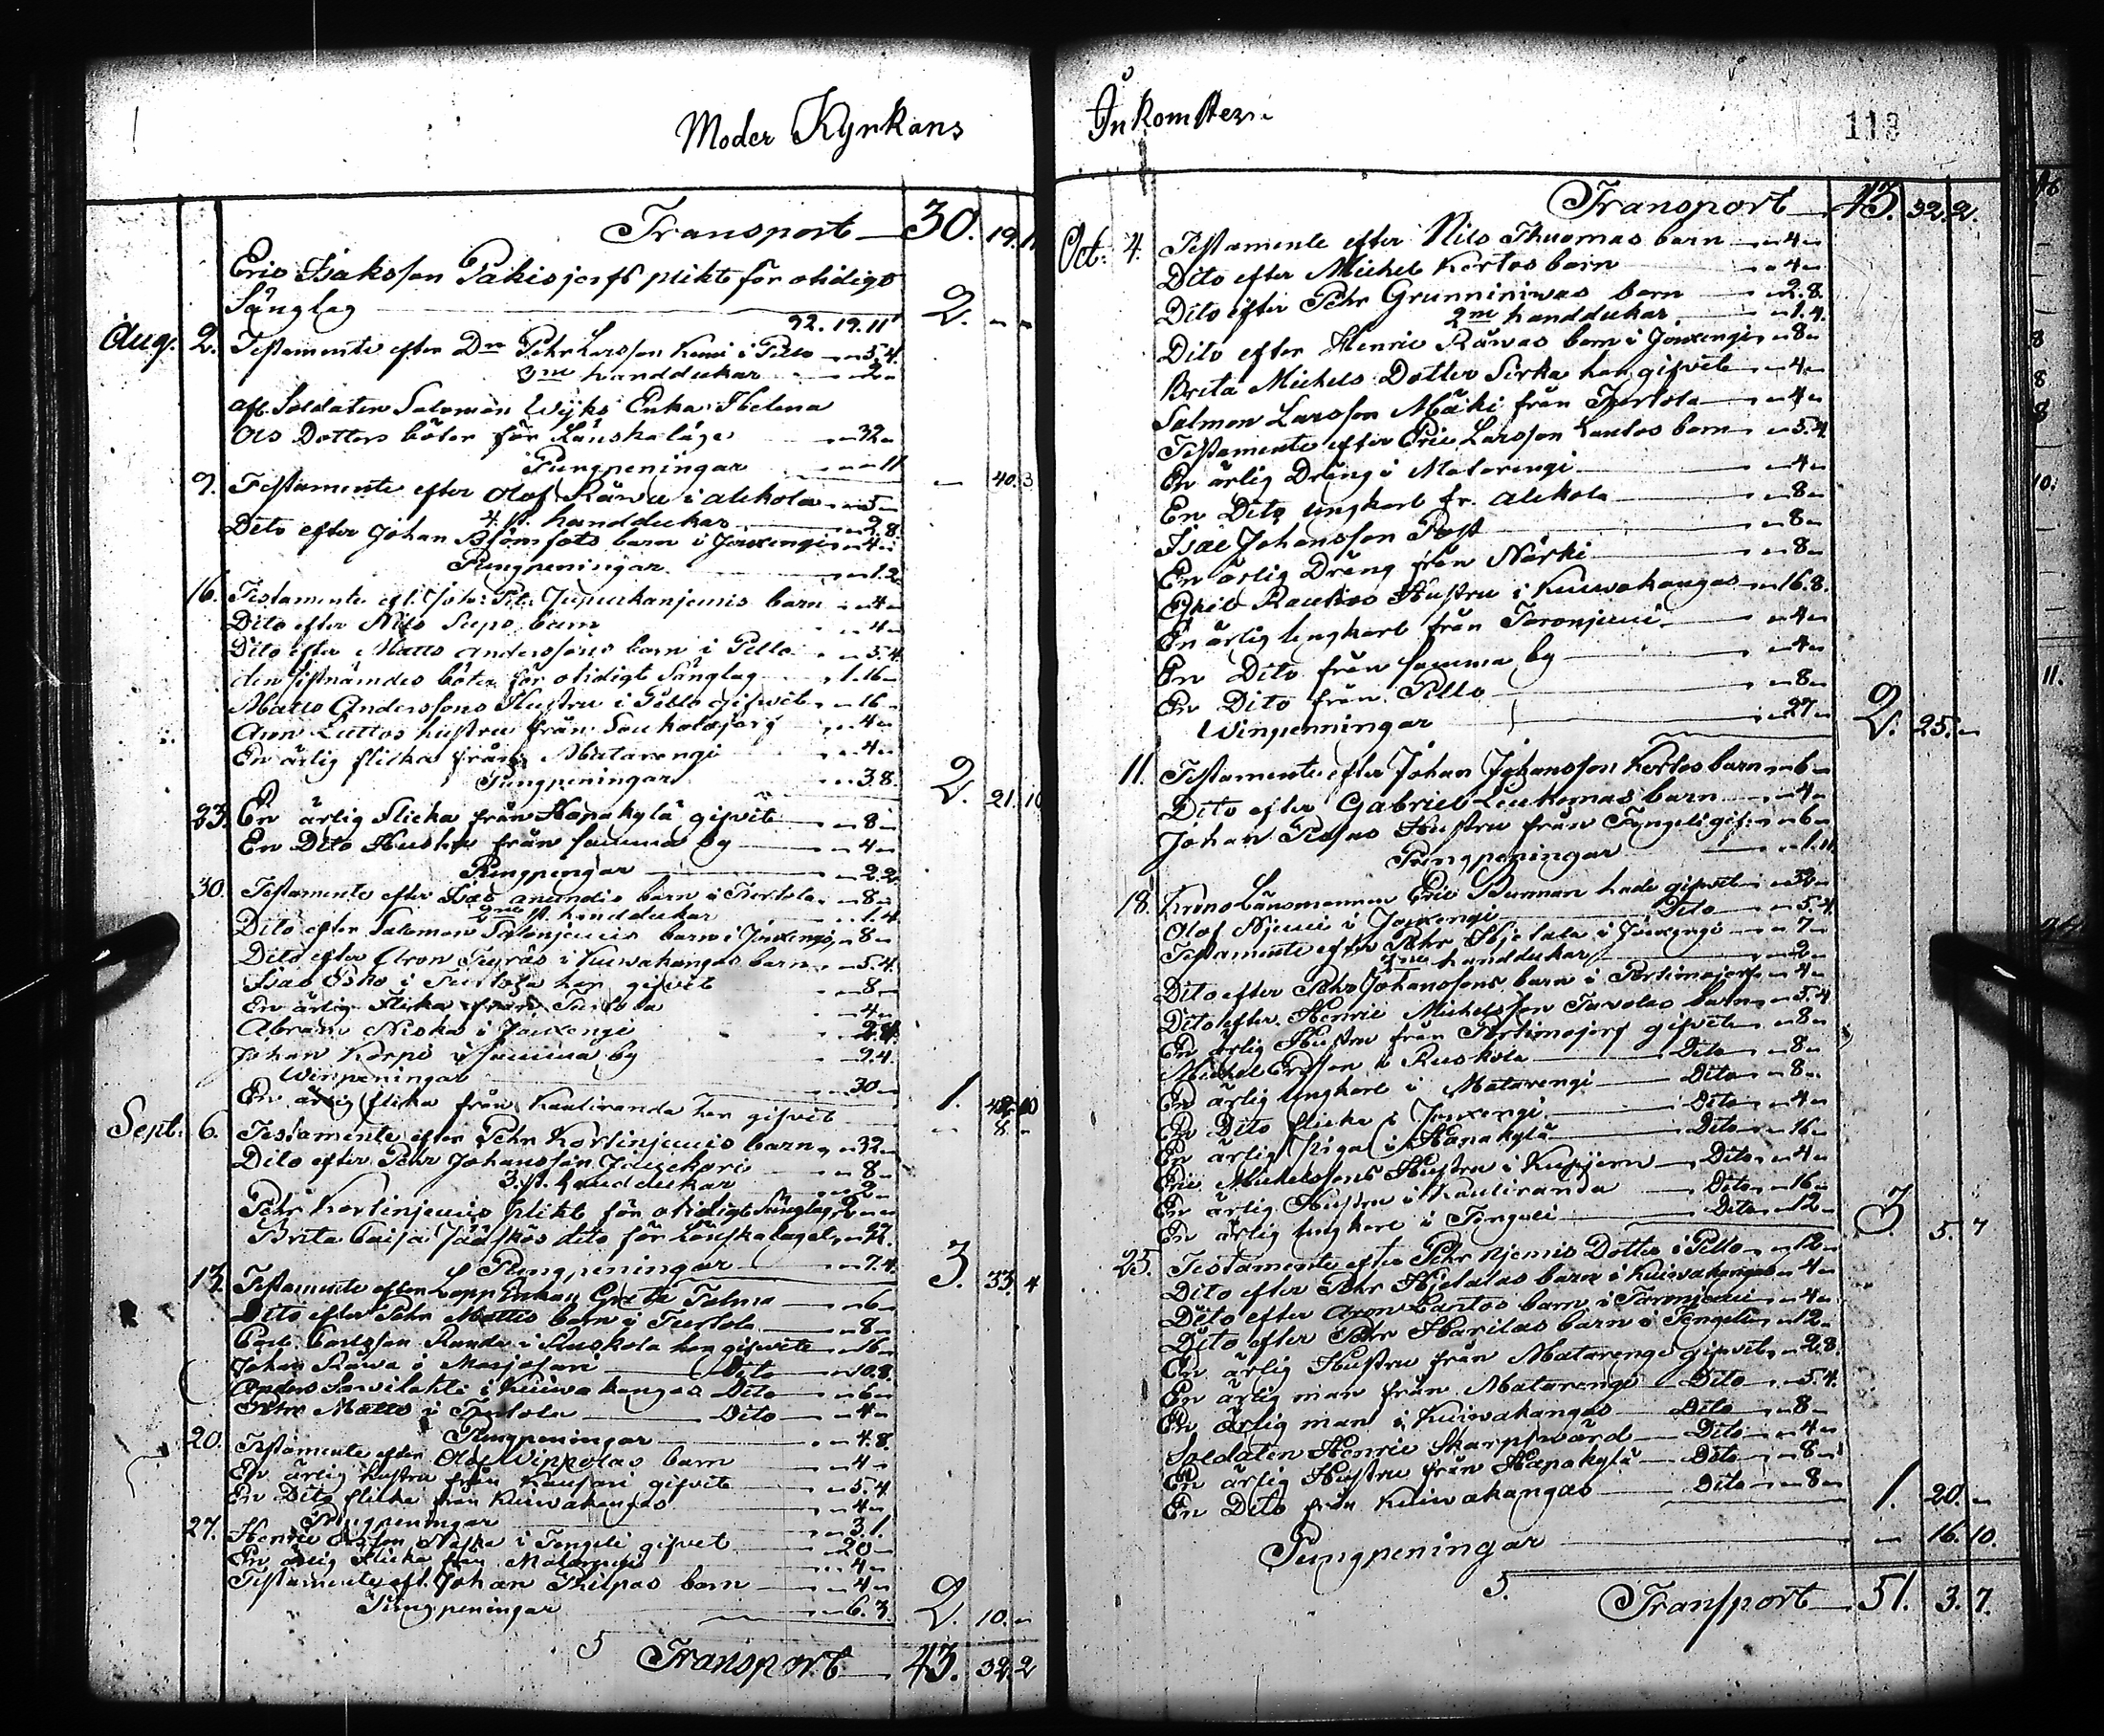 Moder Kyrkans
Transport 30. 19. 11
Eric Isaksson Pakisjerfs plikt för otidigt
Sänglag 2. - -
92. 19. 11
Aug. 2. Testamente efter Dn Pehr Larsson Kemi i Pello - 5.4.
3ne handdukar - 2 -
aft Soldaten Salomon Wijks Enka Helena
Ols Dotters böter för Länskaläge - 32 -
Pungpeningar - - 11 - 40. 3
9. Testamente efter Olof Räwa i Alekola - 5 -
4. st. handdukar - 2.8.
Dito efter Johan Björnfots barn i Jouxengi - 4 -
Pungpeningar - 1.2
16. Testamente eft. Joh: Pet. Jupukanjemis barn - 4 -
Dito efter Nils Seps barn - 4 -
Dito efter Matts Anderssons barn i Pello - 5.4.
den sistnämdes böter för otidigt Sänglag 1. 16 -
Matts Anderssons Hustru i Pello gifwit - 16 -
Aron Luttos hustru från Loukolajerf - 4 -
En ärlig flicka från Matarengi - 4 -
Pungpeningar - 3.8. 2. 21. 10
23. En ärlig Flicka från Hapakylä gifvit - 8 -
En Dito Hustru från samma by - 4 -
Pungpengar - 2.2.
30. Testamente efter Isac Anundis barn i Turtola - 8 -
2ne st. handdukar - 1.4
Dito efter Salomon barn i Jouxengi - 8 -
Dito efter Aron i Kuiwakangas barn - 5.4.
Isac Esko i Turtola har gifvit - 8 -
En ärlig Flicka från Turtola - 4 -
Abram Niska i Jouxengi - 2.4.
Johan Korpi i samma by - 9.4.
Winpeningar - 30 - 1. 42. 10
En ärlig flicka från Kauliranda har gifvit - 8. -
Sept. 6. Testamente efter Pehr Kortinjemis barn - 32 -
Dito efter Pehr Johansson - 8 -
3. st. handdukar - 2 -
Pehr Kortinjemis plikt för otidigt Sänglag 2 - -
Brita Caisa Jääskös dito för Länskalaget - 32.
Pungpeningar - 7.4. 3. 33. 4
13. Testamente efter Lapp Enkan Greta Tolma - 6 -
Dito efter Pehr Matts barn i Turtola - 8 -
Carl Carlsson Randa i Ruskola har gifvit - 16 -
Johan Räwa i Marjosari Dito - 10.8.
Anders Sarvilahti i Kuiwakangas Dito - 6 -
Pehr Matts i Turtola Dito - 4 -
Pungpeningar - 4.8.
20. Testamente efter Olof Wippolas barn - 4 -
En ärlig hustru från Kaisari gifvit - 5.4
En Dito flicka från Kuiwakangas - 4 -
Pungpeningar - 3.1.
27. Henric Ersson Niska i Tengeli gifvit - 20 -
En ärlig Flicka från Matarengi - 4 -
Testamente eft. Johan Philpas barn - 4 -
Pungpeningar - 6.3. 2. 10. -
5 Transport 43. 32. 2
Inkomster
113
Transport 43. 32. 2.
Oct: 4. Testamente efter Nils Thuomas barn - 4 -
Dito efter Michel Kortos barn - 4 -
Dito efter Pehr Grunniniwas barn - 2.8.
2ne handdukar - 1.4.
Dito efter Henric Räwas barn i Jouxengi - 8 -
Brita Michels Dotter Sirka har gifvit - 4 -
Salmon Larsson Mäki från Turtola - 4 -
Testamente efter Eric Larsson Lantos barn - 5.4.
En ärlig Dräng i Matarengi - 4 -
En Dito ungkarl fr. Alekola - 8 -
Isac Johansson Post - 8 -
En ärlig Dräng från Närki - 8 -
Eskil Rautios Hustru i Kuiwakangas - 16.8.
En ärlig Ungkarl från Toronjemi - 4 -
En Dito från samma by - 4 -
En Dito från Pello - 8 -
Winpenningar - 27 - 2. 25. -
11. Testamente efter Johan Johansson Kortos barn - 6 -
Dito efter Gabriel Leukumas barn - 4 -
Johan Hustru från Tengeli gif: - 6 -
Pungpeningar - 1. 11
18. Krono Länsmannen Eric Burman hade gifvit - 32 -
Olof Njemi i Jouxengi Dito - 5.4
Testamente efter Pehr Hjetala i Jouxengi - 7 -
3ne handdukar - 2 -
Dito efter Pehr Johanssons barn i Portimojerf - 4 -
Dito efter Henric Michelsson Tavolas barn - 5.4
En ärlig Hustru från Portimojerf gifvit - 8 -
Michel Ersson i Ruskola Dito - 8 -
En ärlig Ungkarl i Matarengi Dito - 8 -
En Dito flicka i Jouxengi Dito - 4 -
En ärlig Piga i Hapakylä Dito - 16 -
Eric Michelssons Hustru i Kuijern Dito - 4 -
En ärlig Hustru i Kauliranda Dito - 16 -
En ärlig Ungkarl i Tengeli Dito - 12 - 3. 5. 7
25. Testamente efter Pehr Njemis Dotter i Pello - 12 -
Dito efter Pehr Hjetalas barn i Kuiwakangas - 4 -
Dito efter Aron Lantos barn i Toronjemi - 4 -
Dito efter Pehr Harilas barn i Tengeli - 12 -
En ärlig Hustru från Matarengi gifvit - 2.8.
En ärlig man från Matarengi Dito - 5.4.
En ärlig man i Kuiwakangas Dito - 8 -
Soldaten Henric Skarpswärd Dito - 4 -
En ärlig Hustru från Hapakylä Dito - 8 -
En Dito från Kuiwakangas Dito - 8 - 1. 20. -
Pungpeningar - 16. 10.
5. Transport 51. 3. 7.